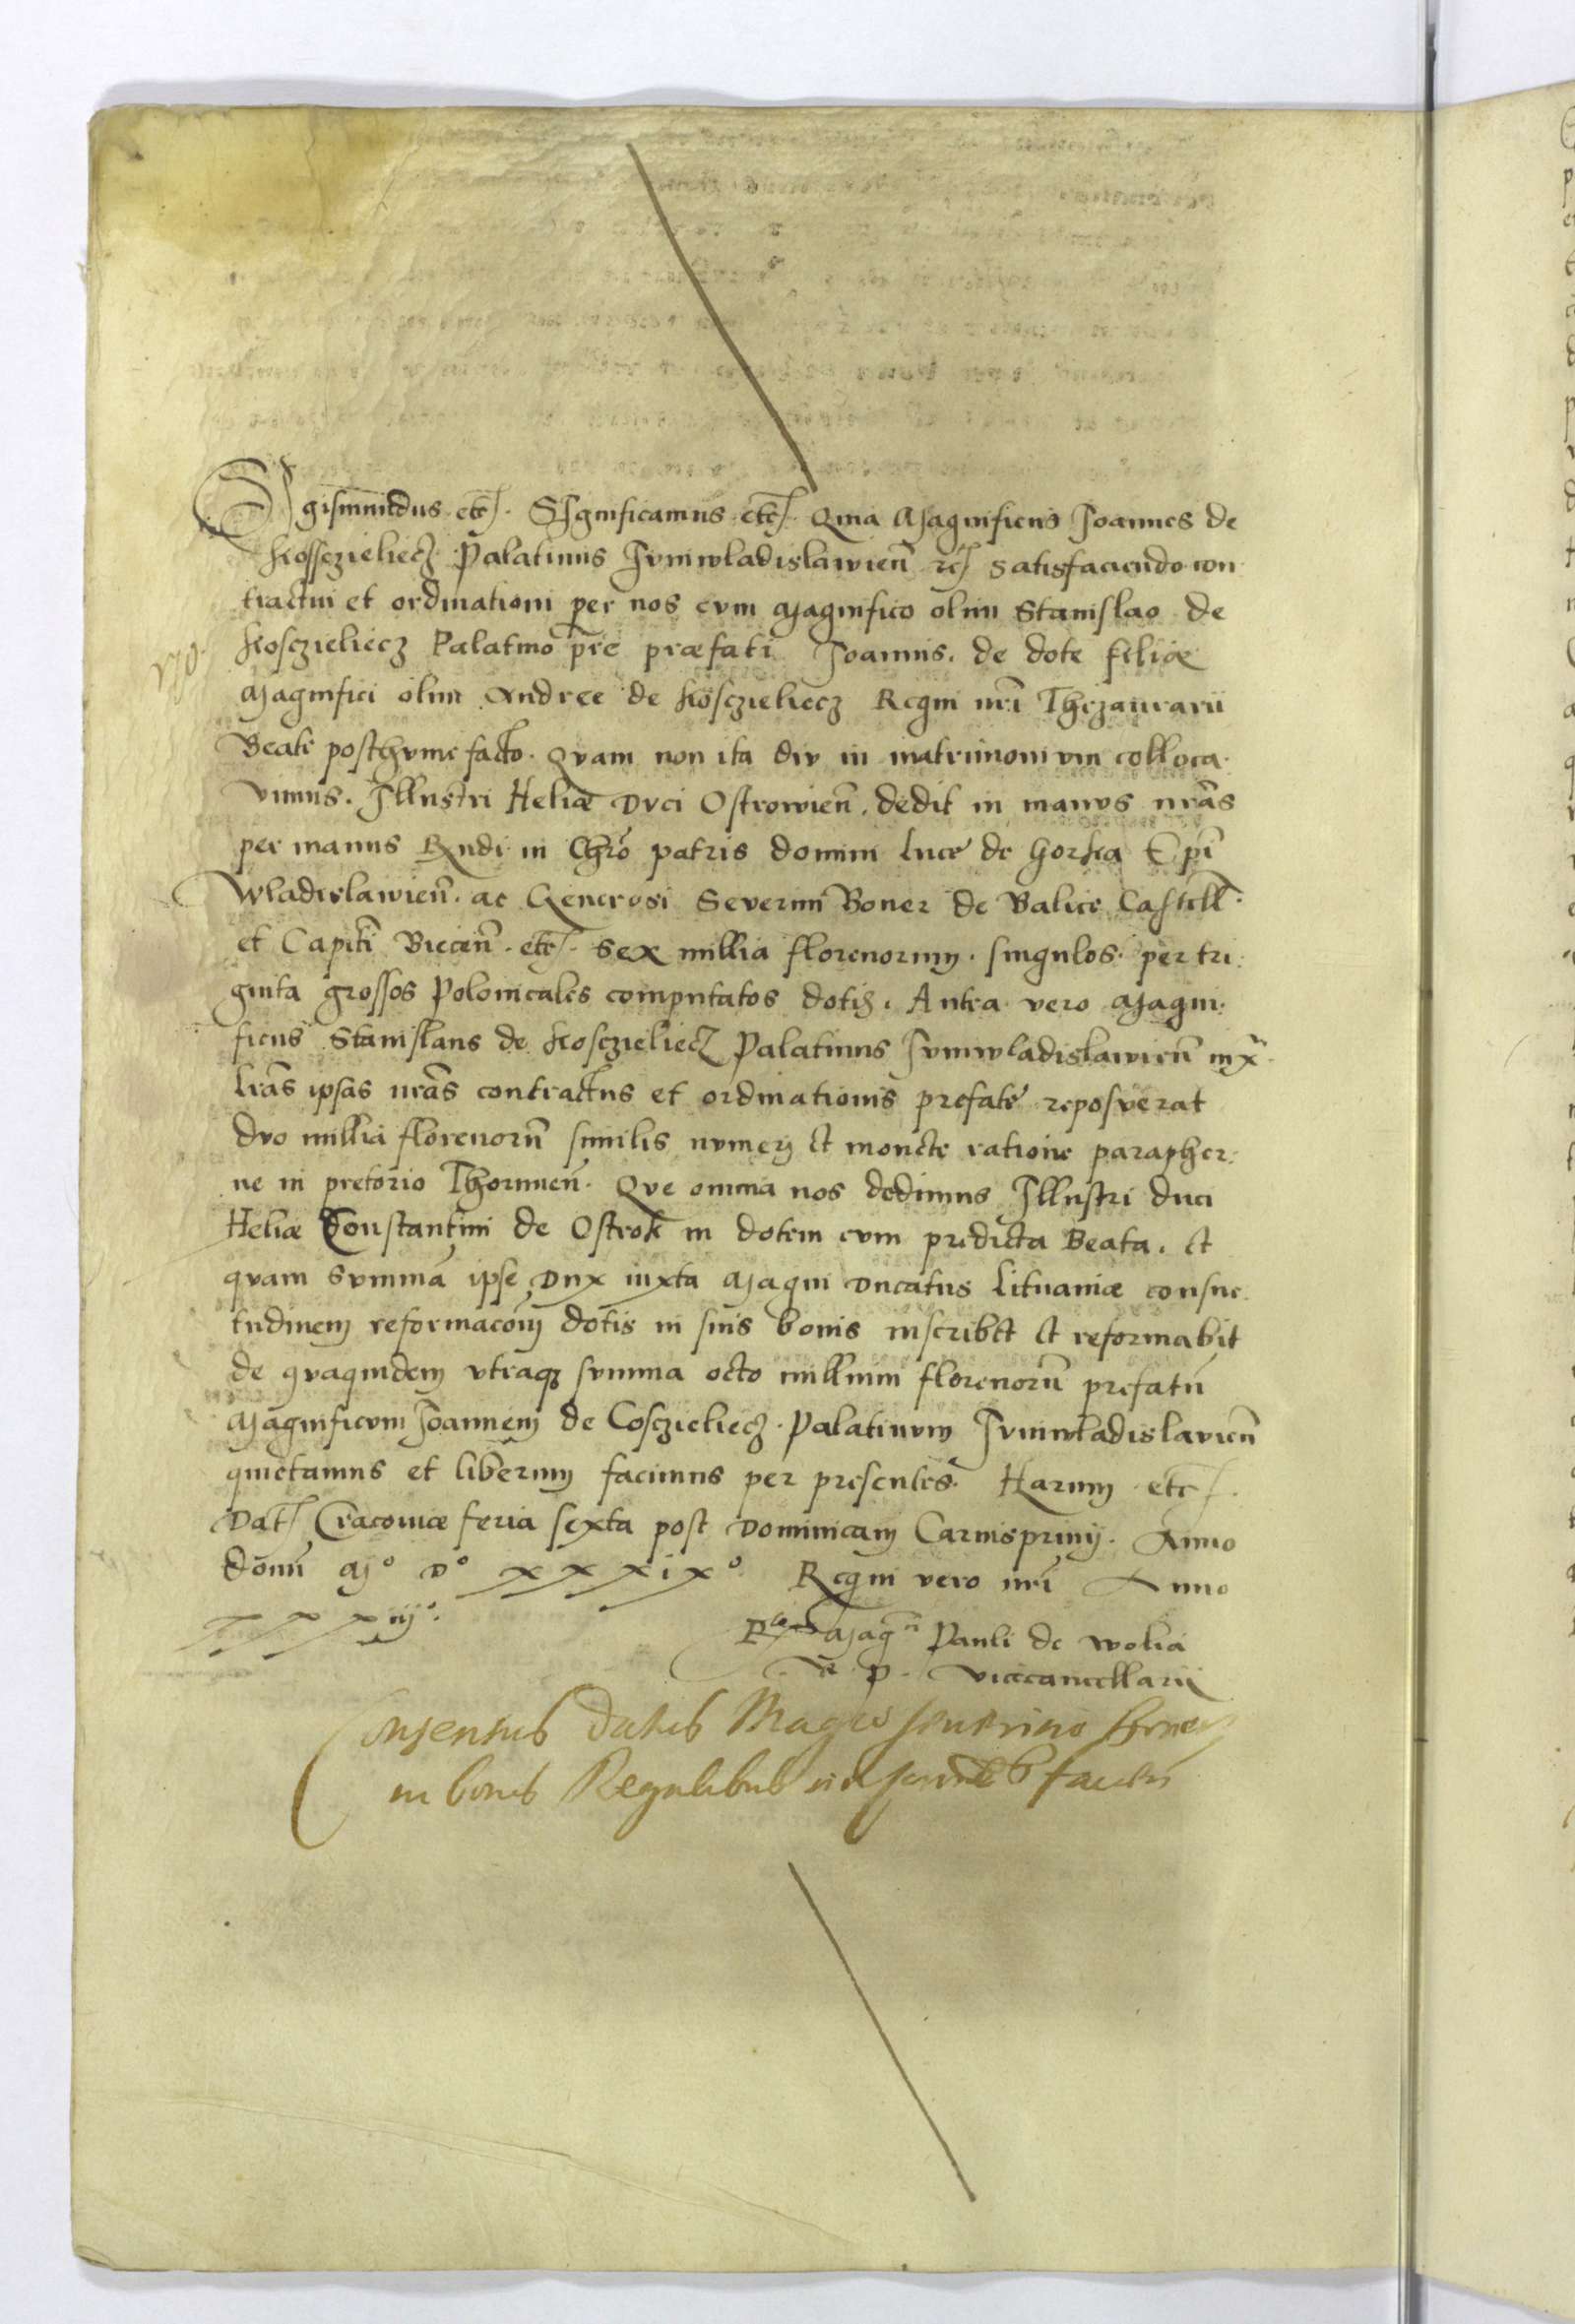 Sigismundus etc. Significamus etc. Quia Magnificus Joannes de
Kossczieliecz Palatinus Junivladislavien̄ rc̄ satisfaciendo con
tractui et ordinationi per nos cum Magnifico olim Stanislao de
Kosczieliecz Palatino pr̄e præfati Joannis, de dote filiæ
Magnifici olim Andree de Kosczieliecz Regni nr̄i Thezaurarii
Beate posthume facto. Quam non ita diu in matrimonium colloca
vimus. Illustri Heliæ Duci Ostrowien̄, dedit in manus nr̄as
per manus Rn̄di in Chr̄o patris domini Luce de Gorka Ep̄i
Wladislawien̄. ac Generosi Severini Boner de Balice Castell̄.
et Capitī Biecen̄. etc. sex millia florenorum. singulos. per tri:
ginta grossos Polonicales computatos dotis. Antea vero Magni:
ficus Stanislaus de Kosczieliecz Palatinus Junivladislavien̄ iux̄
lr̄as ipsas nr̄as contractus et ordinationis prefate reposuerat
duo millia florenorū similis numeri et monete ratione parapher:
ne in pretorio Thorunien̄. Que omnia nos dedimus Illustri duci
Heliæ Constantini de Ostrok in dotem cum predicta Beata. et
quam summā ipse Dux iuxta Magni Ducatus Lituaniæ consue
tudinem reformacōm dotis in suis bonis inscribet et reformabit
de quaquidem utraq; summa octo millium florenorū prefatū
Magnificum Joannem de Cosczieliecz. Palatinum Junivladislavien̄
quietamus et liberum facimus per presentes. Harum etc.
Dat. Cracoviæ feria sexta post Dominicam Carnisprivij. Anno
dōmī Mº Dº xxxixº Regni vero nr̄i Anno
xxxiijº.
R̄lo Mag̃ci Pauli de Wolia
R. P. Vicecancellarii
Consensus datus Mag̃co Severino Boner
in bonis Regalibus